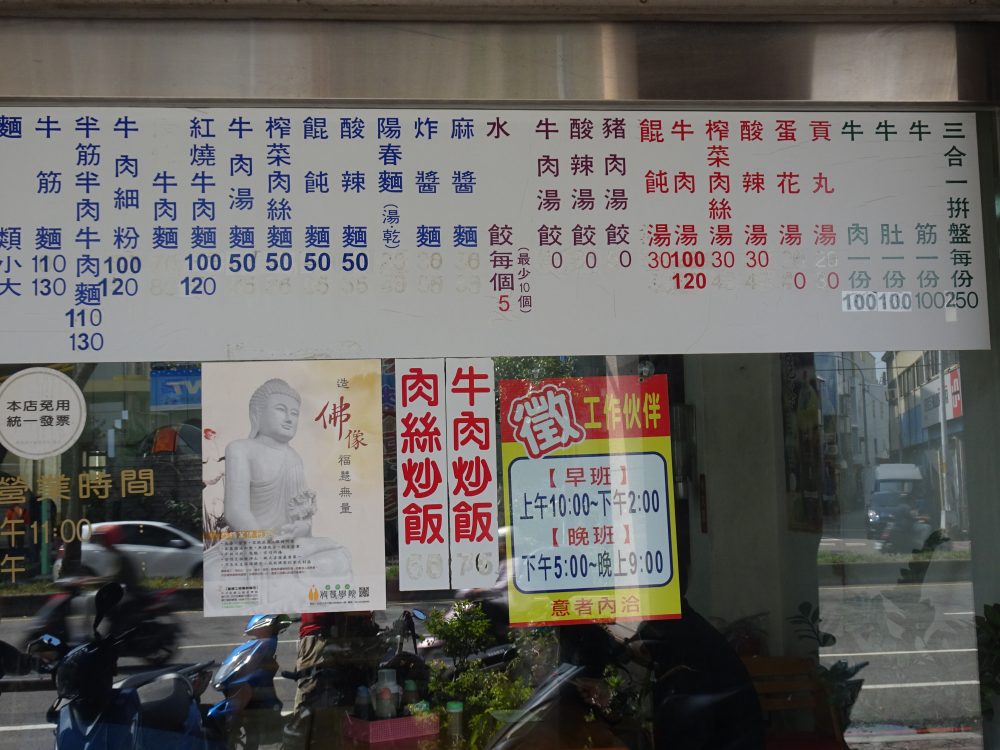 麵類 小 大
牛筋麵 110 130
半筋半肉牛肉麵 110 130
牛肉細粉 100 120
牛肉麵
紅燒牛肉麵 100 120
牛肉湯麵 50
榨菜肉絲麵 50
餛飩麵 50
酸辣麵 50
陽春麵(湯乾)
炸醬麵
麻醬麵
水餃每個5(最少10個)
牛肉湯餃 0
酸辣湯餃 0
豬肉湯餃 0
餛飩湯 30
牛肉湯 100 120
榨菜肉絲湯 30
酸辣湯 30
蛋花湯
貢丸湯
牛肉一份 100
牛肚一份 100
牛筋一份 100
三合一拼盤每份250
本店免用
統一發票
營業時間
午11:00
午
造佛像福慧無量
肉絲炒飯
牛肉炒飯
徵工作伙伴
【早班】
上午10:00~下午2:00
【晚班】
下午5:00~晚上9:00
意者內洽